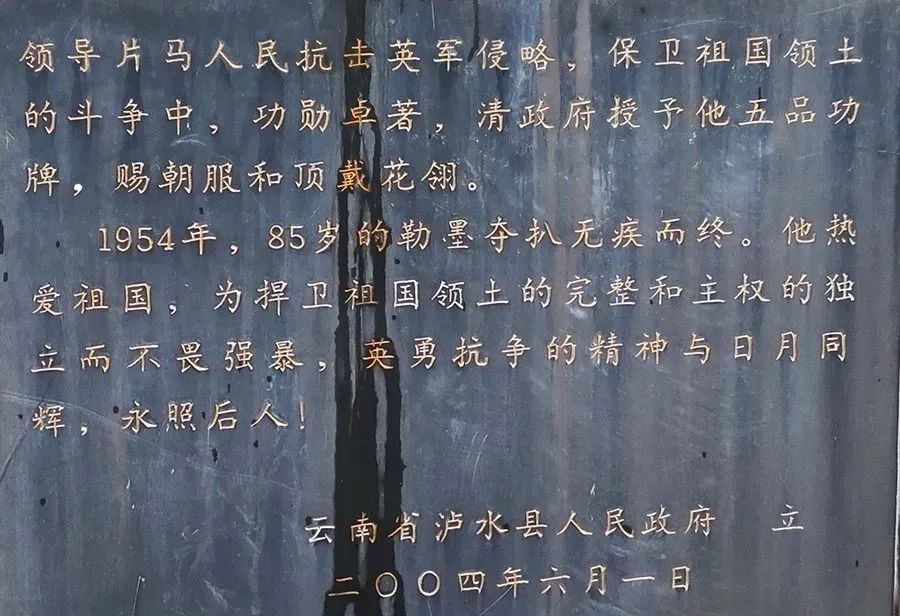 领导片马人民抗击英军侵略，保卫祖国领土
的斗争中，功勋卓著，清政府授予他五品功
牌，赐朝服和顶戴花翎。
1954年，85岁的勒墨夺扒无疾而终。他热
爱祖国，为捍卫祖国领土的完整和主权的独
立而不畏强暴，英勇抗争的精神与日月同
辉，永照后人！
云南省泸水县人民政府 立
二〇〇四年六月一日